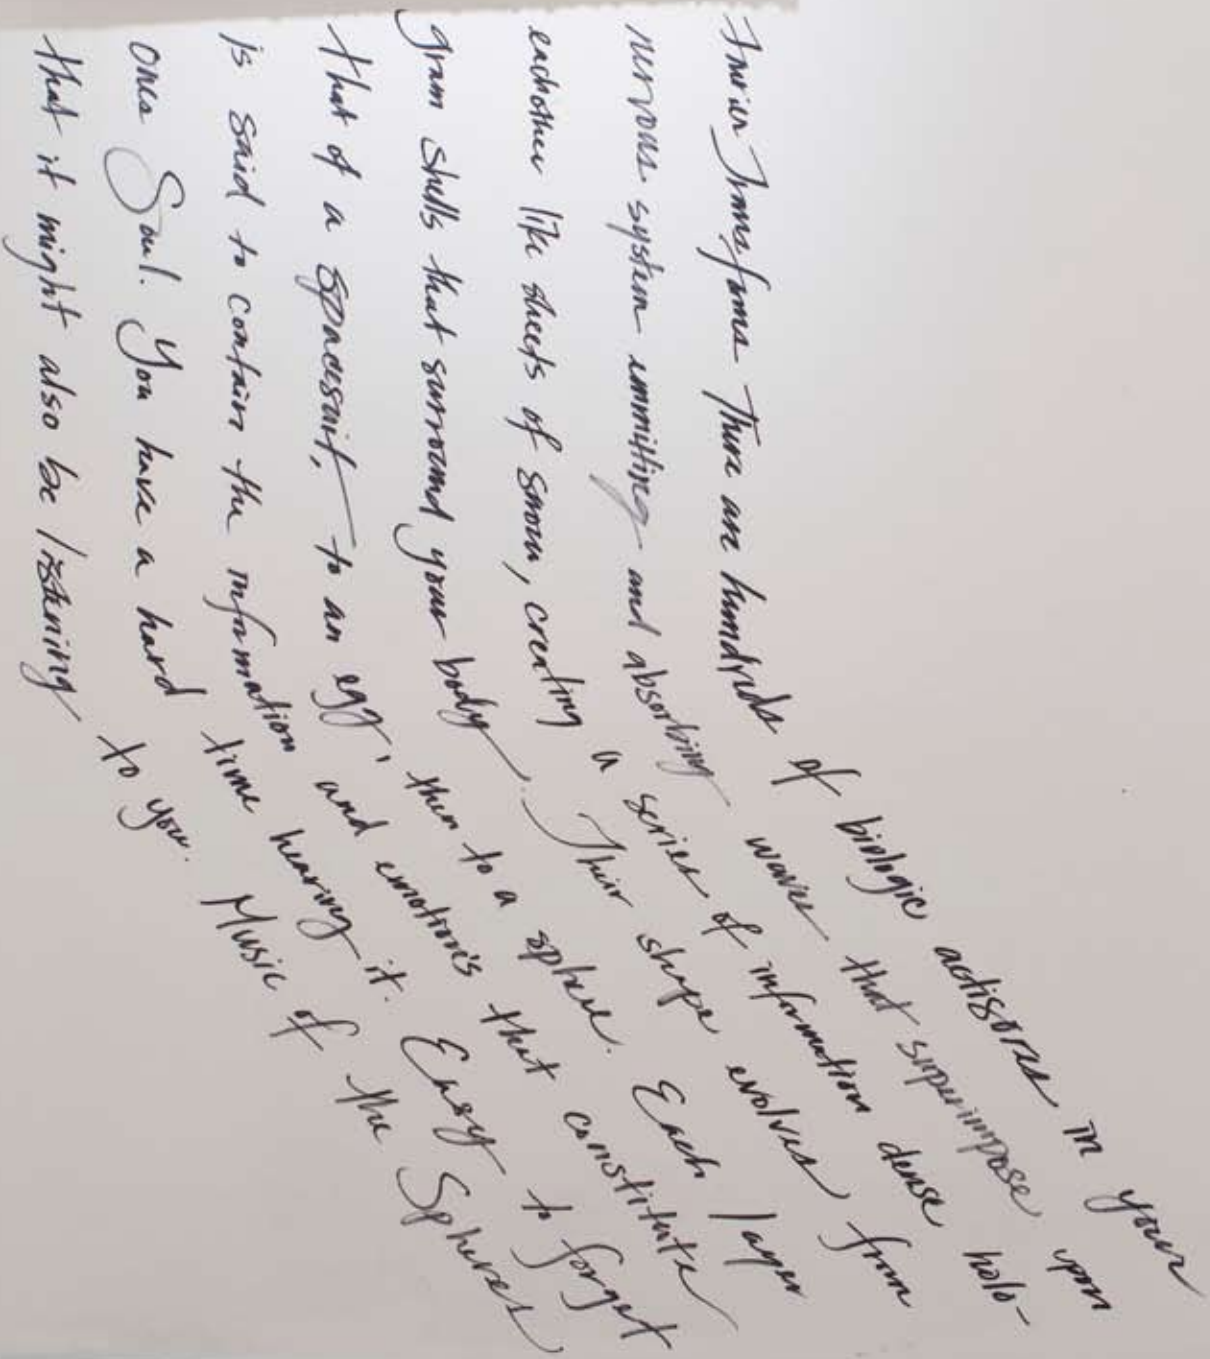 Fourier Transforms There are hundreds of biologic in your
nervous system emmitting and absorbing waves that superimpose upon
eachother like sheets of snow, creating a series of information dense holo-
gram shells that surround your body. Their shape evolves from
that of a spacesuit, to an egg, then to a sphere. Each layer
is said to contain the information and emotion's that constitute
ones Soul. You have a hard time hearing it. Easy to forget
that it might also be listening to you. Music of the Spheres